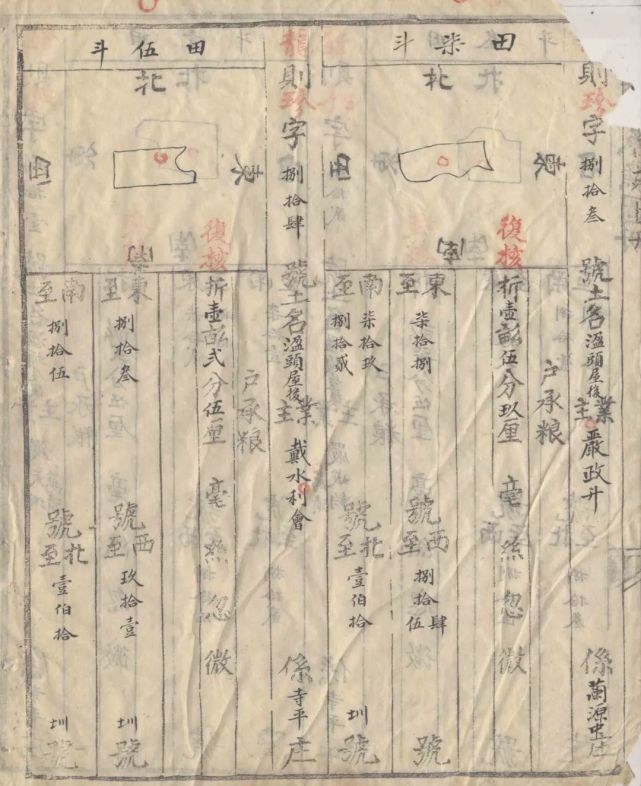 田柒斗
北
東
西
南
復核
則珍字捌拾叁號土名溋頭屋後業主嚴政斗係蘭源虫庄
戶承粮
折壹畝伍分玖厘毫絲忽微
東至柒拾捌號西至捌拾肆伍號
南至柒拾玖捌拾貳號北至壹伯拾圳號
田伍斗
北
東
西
南
復核
龍則珍字捌拾肆號土名溋頭屋後業主戴水利會係寺平庄
戶承粮
折壹畝弍分伍厘毫絲忽微
東至捌拾叁號西至玖拾壹圳號
南至捌拾伍號北至壹伯拾圳號